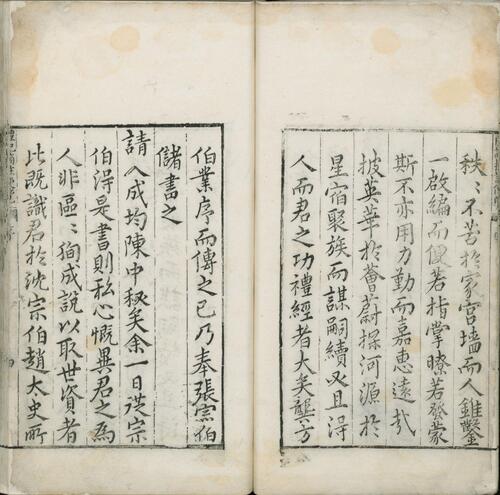 秩〻不苦於家宮墻而人錐鑿
一啟編而便若指掌瞭若發蒙
斯不亦用力勤而嘉惠遠哉
披英華於薈蔚探河源於
星宿聚族而謀嗣續又且得
人而君之功禮經者大矣龔方
伯業序而傳之已乃奉張宗伯
儲書之
請入成均陳中秘矣余一日從宗
伯得是書則私心慨異君之為
人非區〻狥成說以取世資者
比既識君於沈宗伯趙太史所